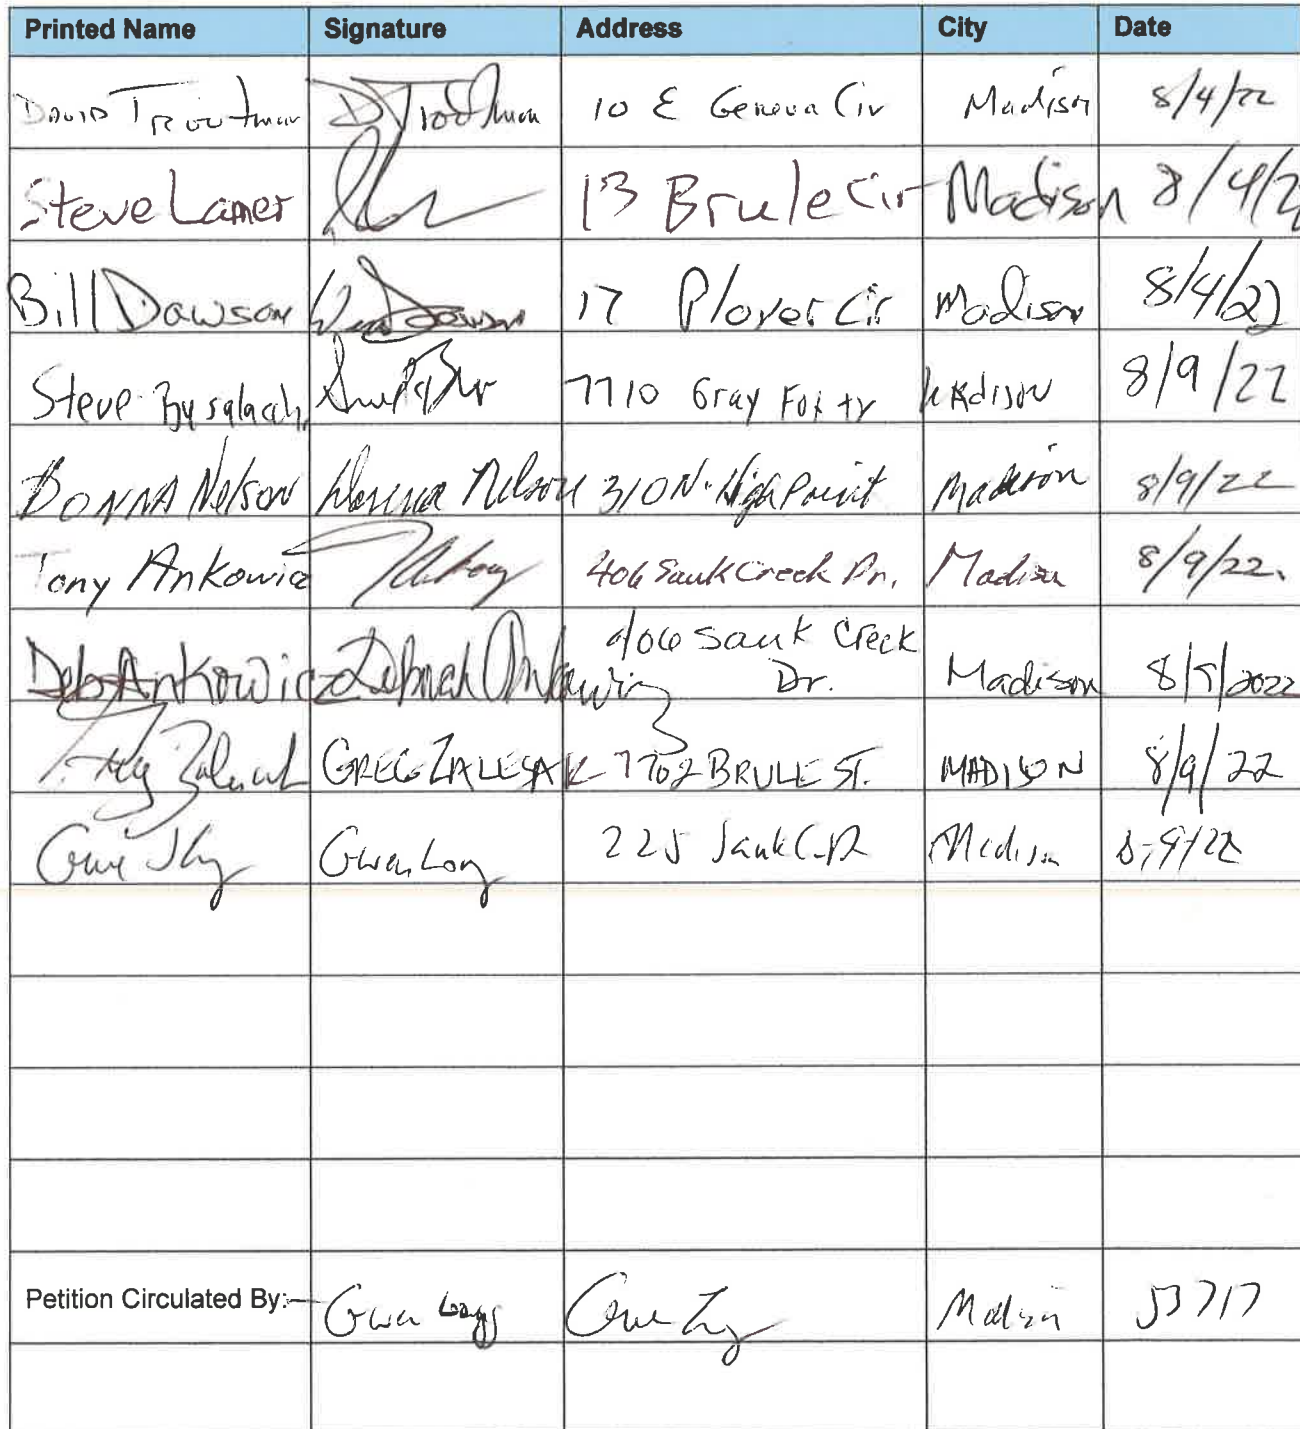 Printed Name Signature Address City Date
DAVID Troutman D Troutman 10 E Geneva Cir Madison 8/4/22
Steve Lamer 13 Brule Cir Madison 8/4/2
Bill Dawson Dawson 17 Plover Cir Madison 8/4/22
Steve 7710 Gray Fox tr Madison 8/9/22
DONNA Nelson Donna Nelson 310 N. High Point Madison 8/9/22
Tony Ankowicz 406 Sauk Creek Dr. Madison 8/9/22.
Deb Ankowicz Deborah Ankowicz 406 Sauk Creek
Dr. Madison 8/9/2022
Greg Zalesak GREG ZALESAK 7702 BRULE ST. MADISON 8/9/22
Gwen Long Gwen Long 225 Sauk C. Dr Madison 8/9/22
Petition Circulated By: Gwen Long Gwen Long Madison 53717